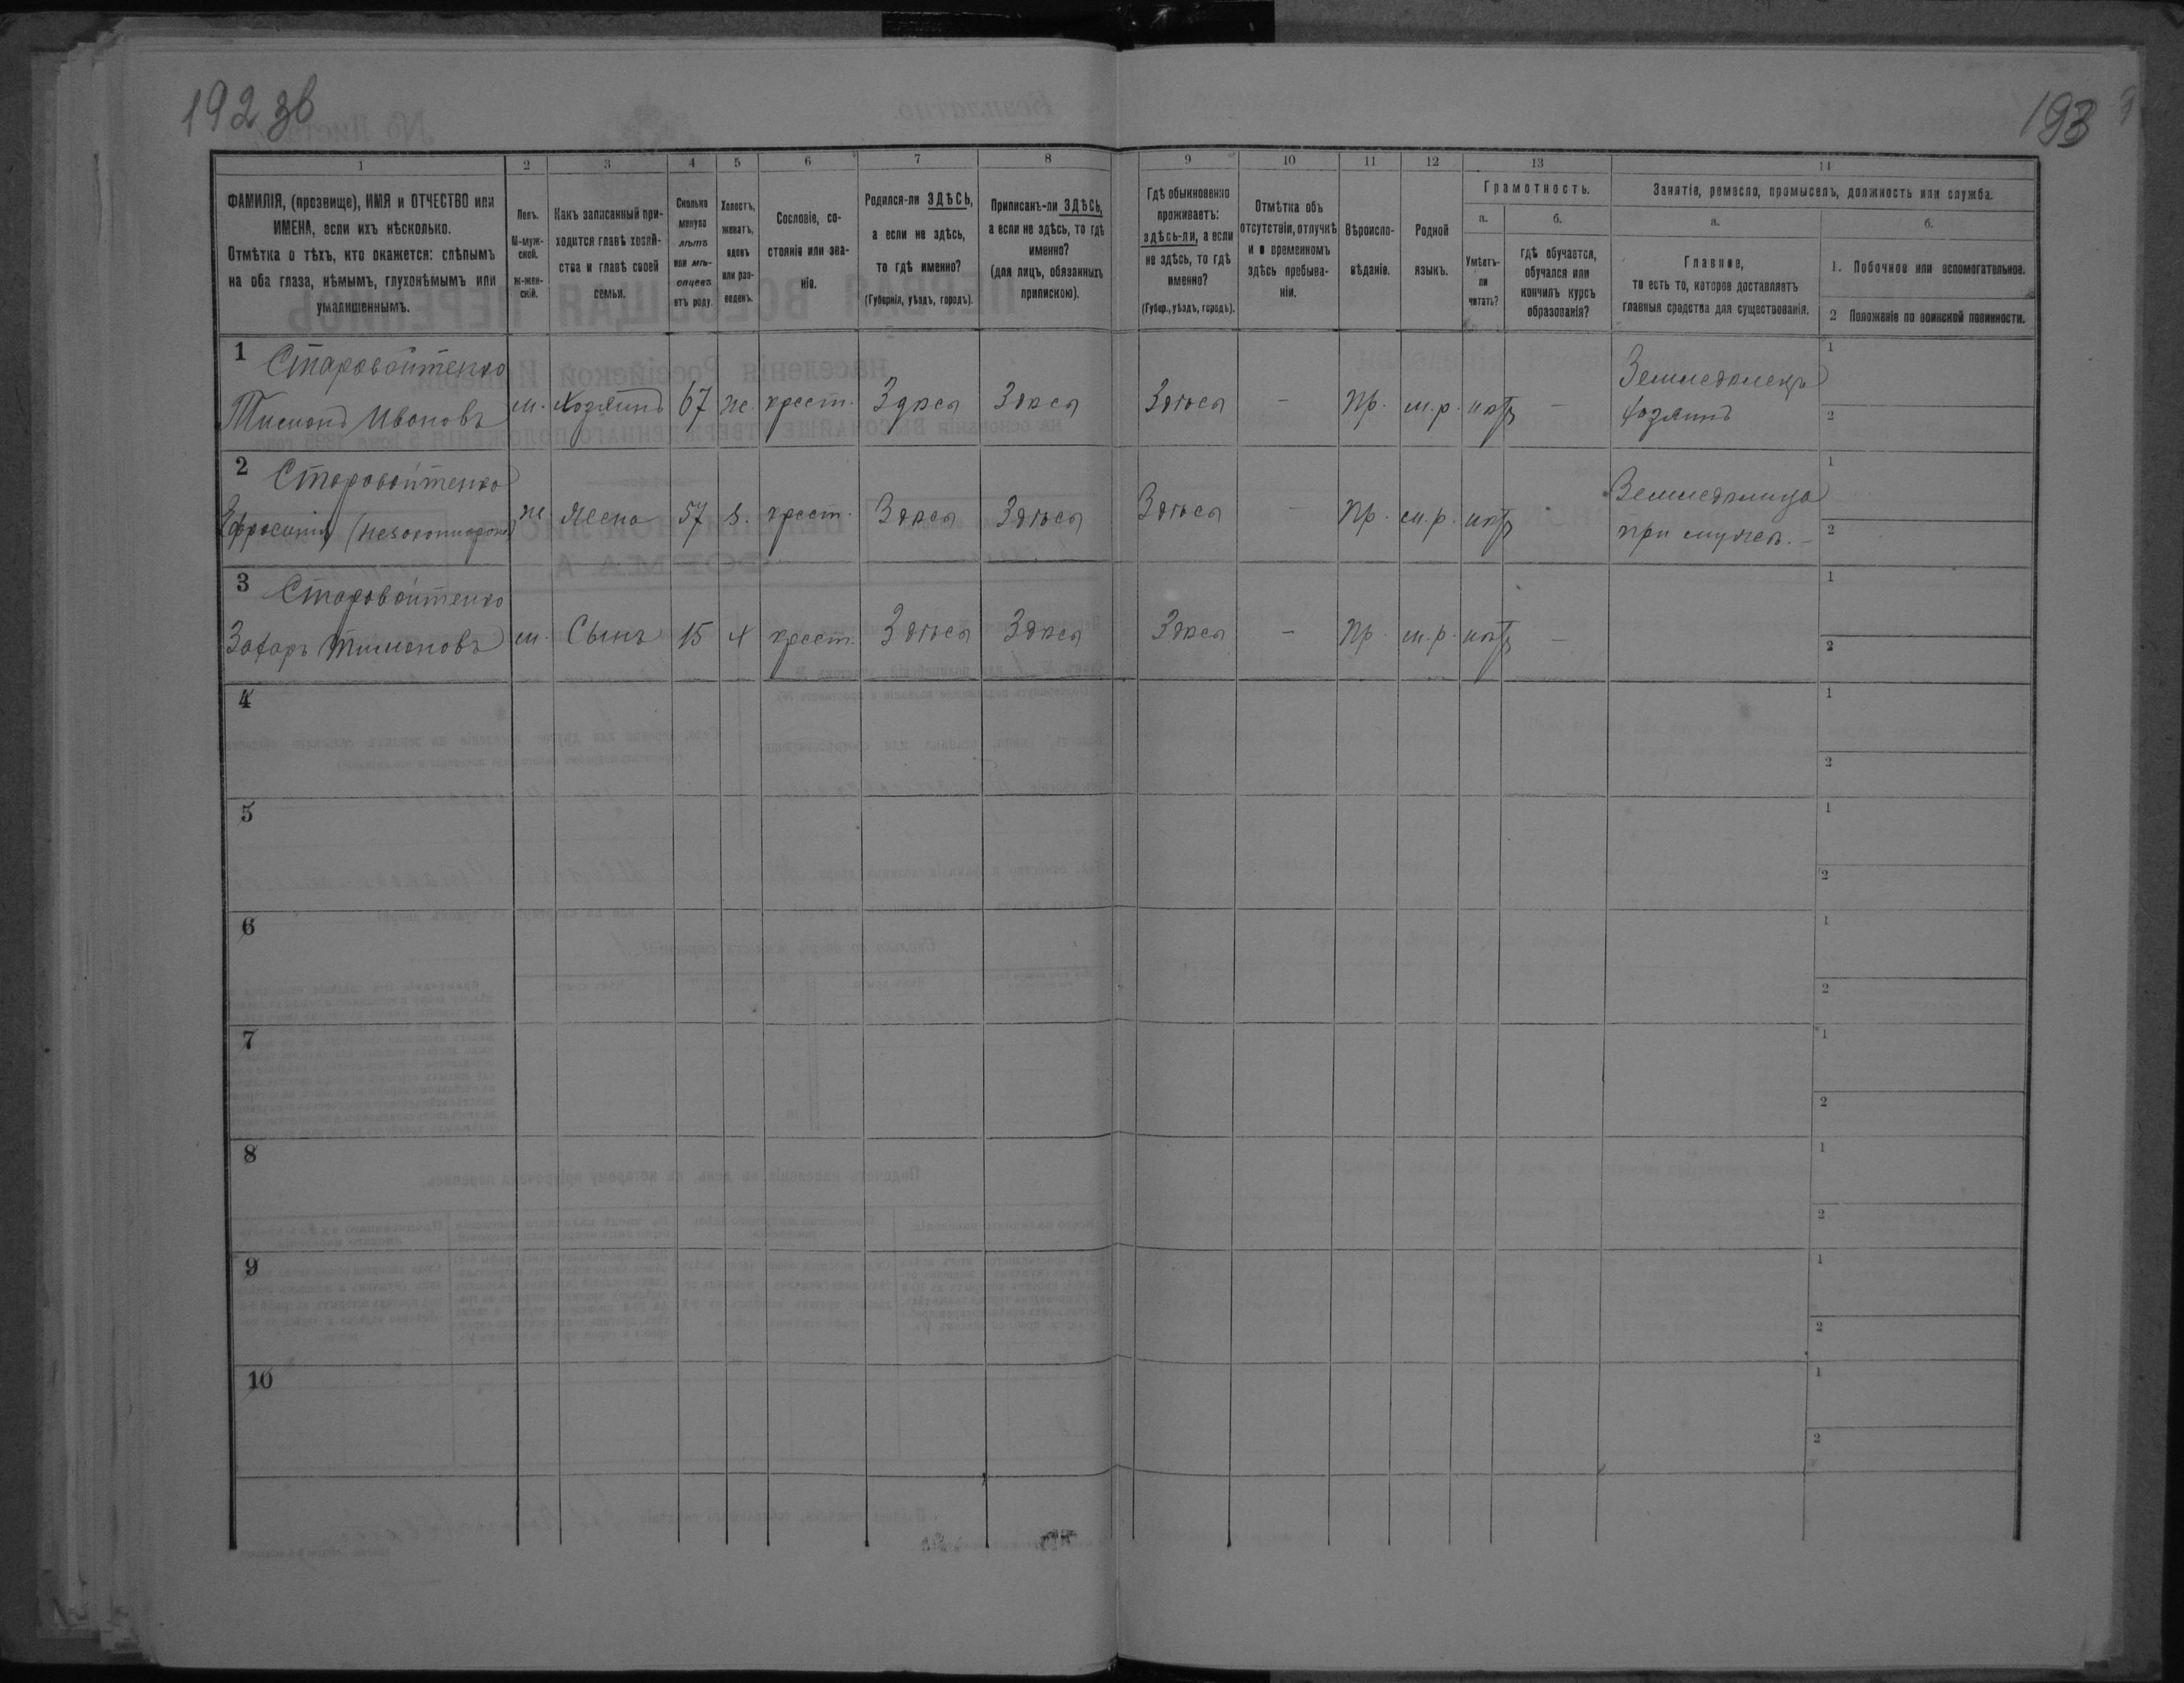 192 зв
193
1
2
3
4
5
6
7
8
9
10
11
12
13
14
ФАМИЛІЯ, (прозвище), ИМЯ и ОТЧЕСТВО или
ИМЕНА, если ихъ нѣсколько.
Отмѣтка о тѣхъ, кто окажется: слѣпымъ
на оба глаза, нѣмымъ, глухонѣмымъ или
умалишеннымъ.
Полъ.
М-муж-
ской.
Ж-жен-
скій.
Какъ записанный при-
ходится главѣ хозяй-
ства и главѣ своей
семьи.
Сколько
минуло
лѣтъ
или мѣ-
сяцевъ
отъ роду.
Холостъ,
женатъ,
вдовъ
или раз-
веденъ.
Сословіе, со-
стояніе или зва-
ніе.
Родился-ли ЗДѢСЬ,
а если не здѣсь,
то гдѣ именно?
(Губернія, уѣздъ, городъ).
Приписанъ-ли ЗДѢСЬ,
а если не здѣсь, то гдѣ
именно?
(для лицъ, обязанныхъ
припискою).
Гдѣ обыкновенно
проживаетъ:
здѣсь-ли, а если
не здѣсь, то гдѣ
именно?
(Губер., уѣздъ, городъ).
Отмѣтка объ
отсутствіи, отлучкѣ
и о временномъ
здѣсь пребыва-
ніи.
Вѣроиспо-
вѣданіе.
Родной
языкъ.
Грамотность.
а.
Умѣетъ-
ли
читать?
б.
гдѣ обучается,
обучался или
кончилъ курсъ
образованія?
Занятіе, ремесло, промыселъ, должность или служба.
а.
Главное,
то есть то, которое доставляетъ
главныя средства для существованія.
б.
1. Побочное или вспомогательное.
2 Положеніе по воинской повинности.
1 Старовойтенко
Тимонъ Ивановъ м. Хозяинъ 67 ж. крест. Здѣсь Здѣсь Здѣсь - пр. м.р. нѣтъ -
Земледѣлецъ
хозяинъ
1
2
2 Старовойтенко
Ефросинія м. Жена 57 з. крест. Здѣсь Здѣсь Здѣсь - пр. м.р. нѣтъ
Земледѣлица
при мужѣ. -
1
2
3 Старовойтенко
Захаръ Тимоновъ м Сынъ 15 х крест. Здѣсь Здѣсь Здѣсь - пр. м.р. нѣтъ -
1
2
4
1
2
5
1
2
6
1
2
7
1
2
8
1
2
9
1
2
10
1
2